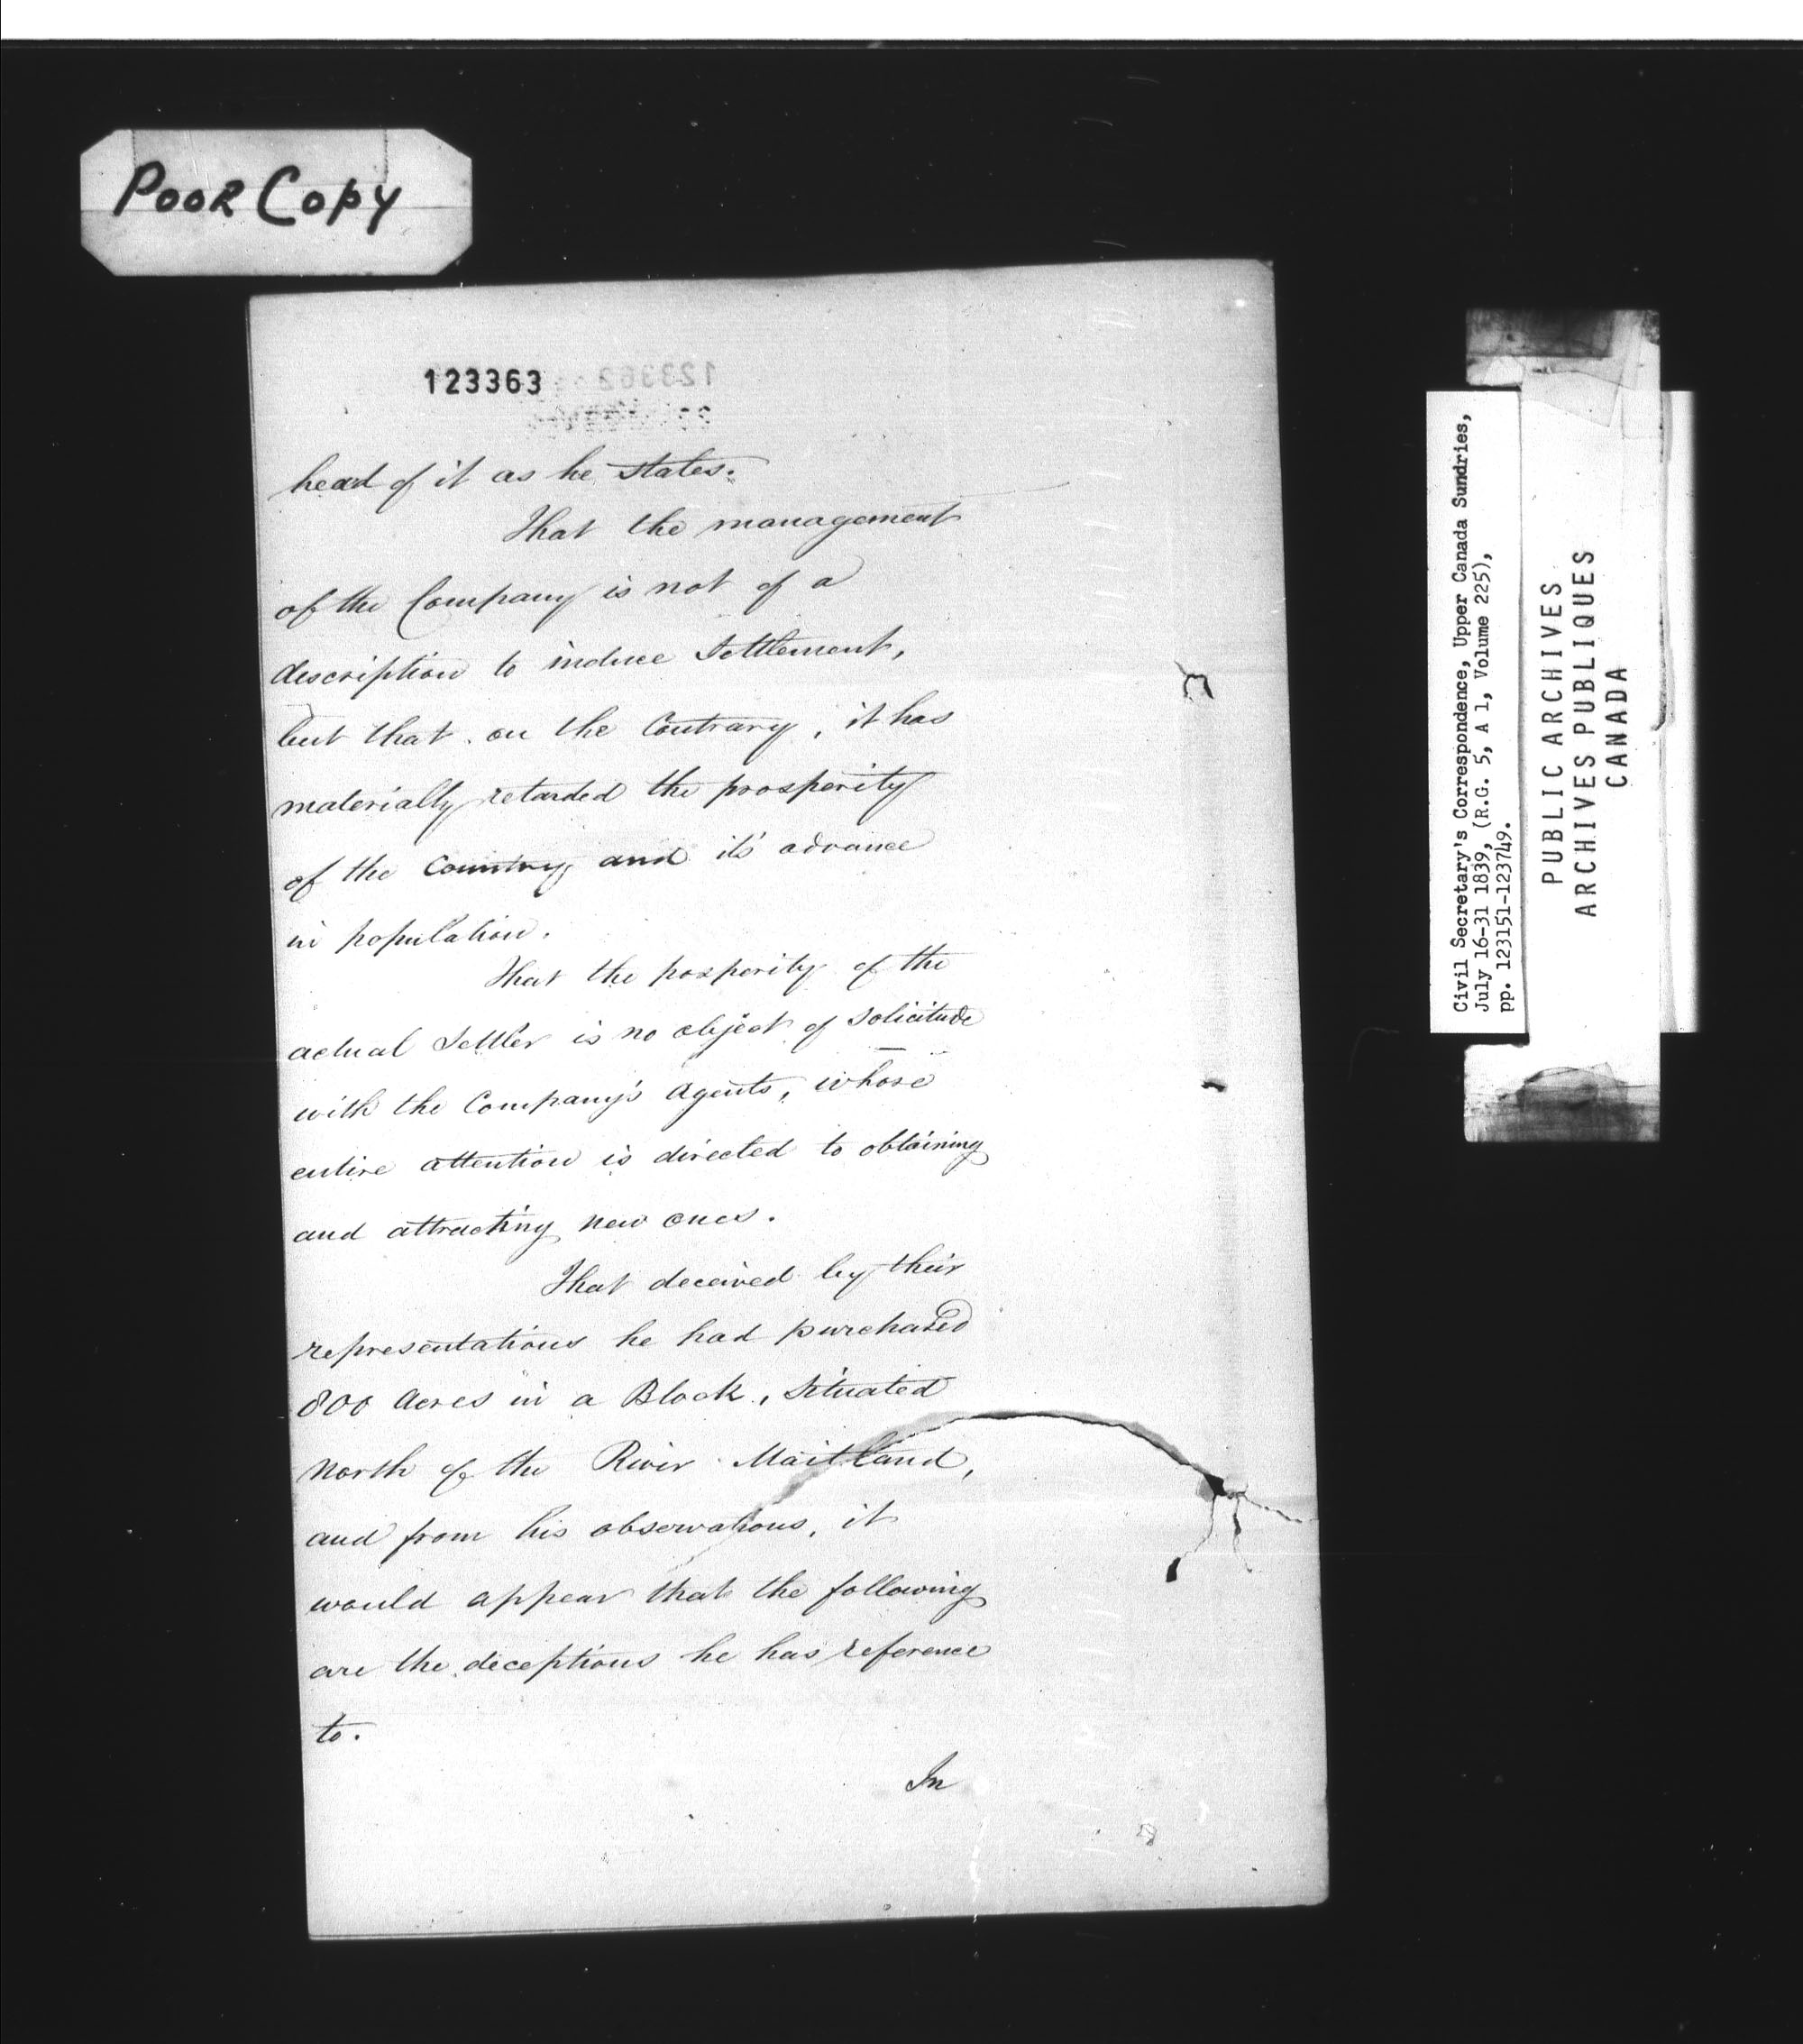 Poor Copy
123363
head of it as he states.
That the management
of the Company is not of a
description to induce Settlement,
but that on the Contrary, it has
materially retarded the prosperity
of the Country and it's advance
in population.
That the posperity of the
actual Settler is no object of Solicitude
with the Company's Agents, whose
entire attention is directed to obtaining
and attracting new ones.
That deceived by their
representations he had purchased
800 Acres in a Block, Situated
North of the River Maitland,
and from his observations, it
would appear that the following
are the deceptions he has reference
to.
In
Civil Secretary's Correspondence, Upper Canada Sundries,
July 16-31 1839, (R.G. 5, A 1, Volume 225),
pp. 123151-123749.
PUBLIC ARCHIVES
ARCHIVES PUBLIQUES
CANADA